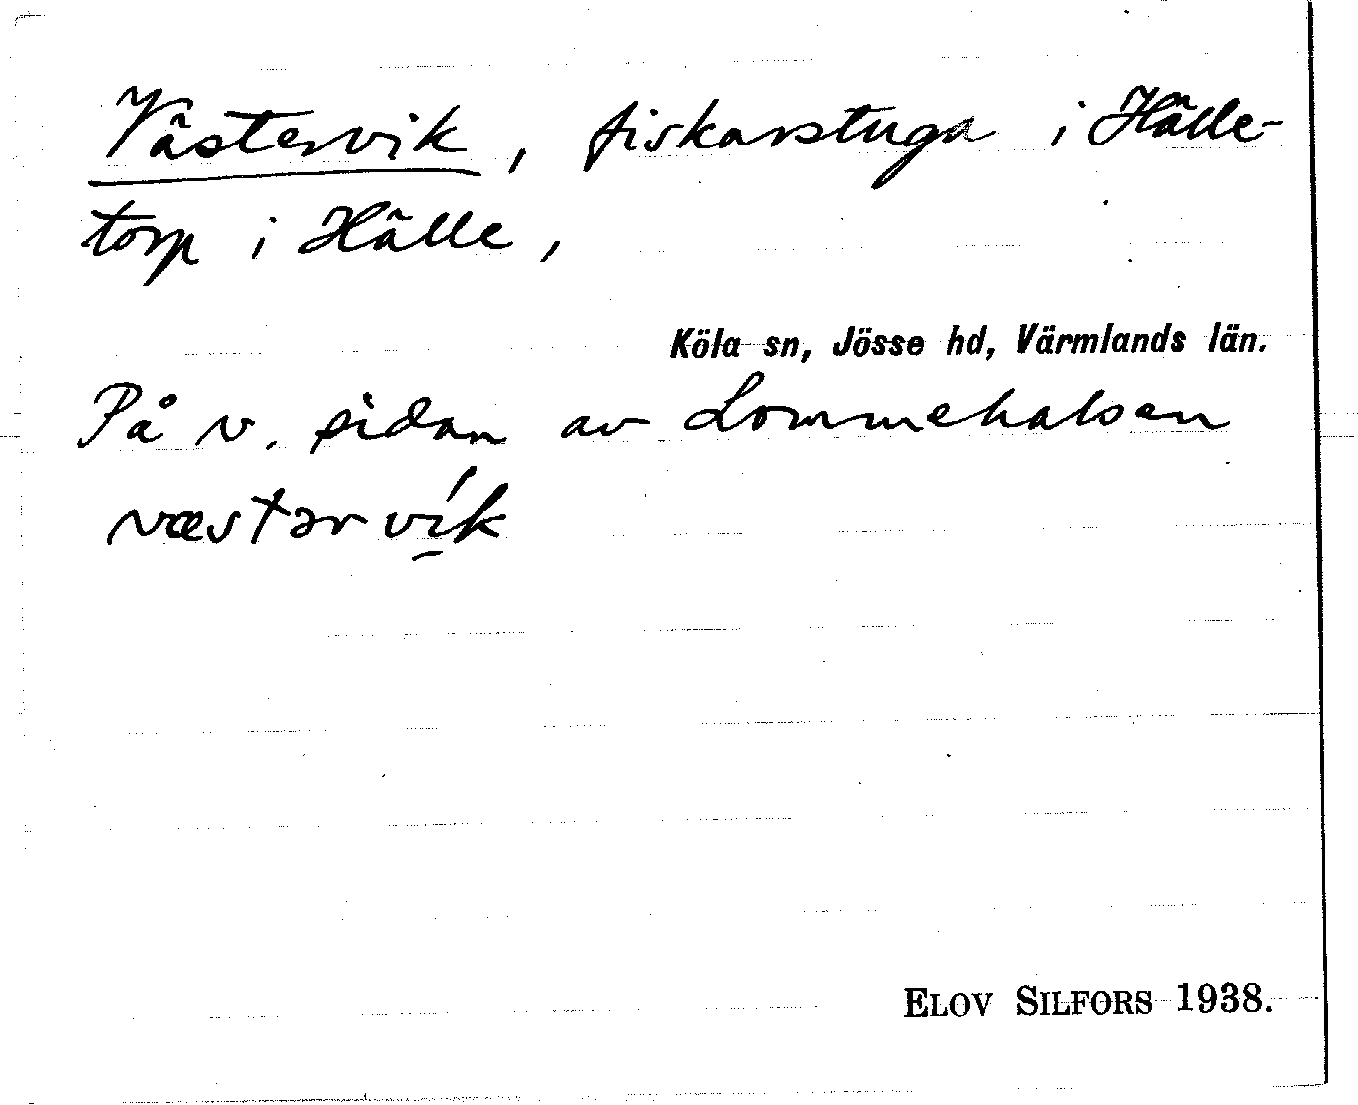 Västervik, fiskarstuga i Hälle-
torp i Hälle,
Köla sn, Jösse hd, Värmlands län.
På v. sidan av Lommehalsen
væstərvík
ELOV SILFORS 1938.